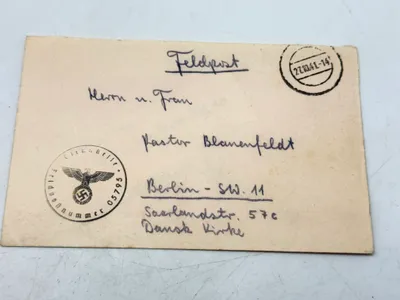 Feldpost
27.10.41.-14
Herrn u. Frau
Pastor Blanenfeldt
Berlin - SW. 11
Saarlandstr. 57c
Dansk Kirke
Dienststelle • Feldpostnummer 05795 •